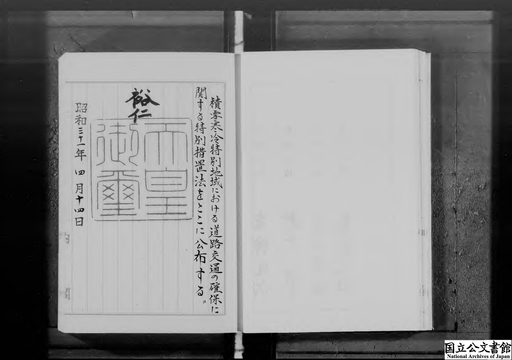 積雪寒冷特別地域における道路交通の確保に
関する特別措置法をここに公布する。
裕仁
天皇
御璽
昭和三十一年四月十四日
国立公文書館
National Archives of Japan